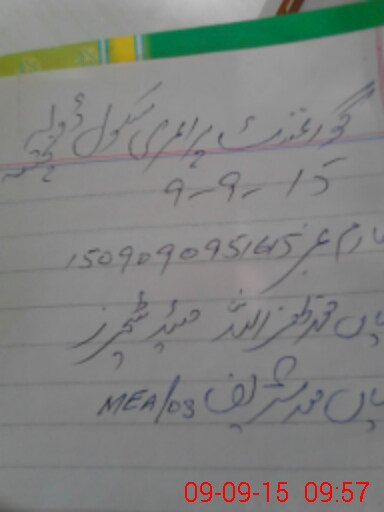 گورنمنٹ پرائمری سکول
9-9-15
فارم نمبر 150909095145
میاں محمد ظفر اللہ ہیڈ ٹیچر
میاں محمد شریف MEA/03
09-09-15 09:57